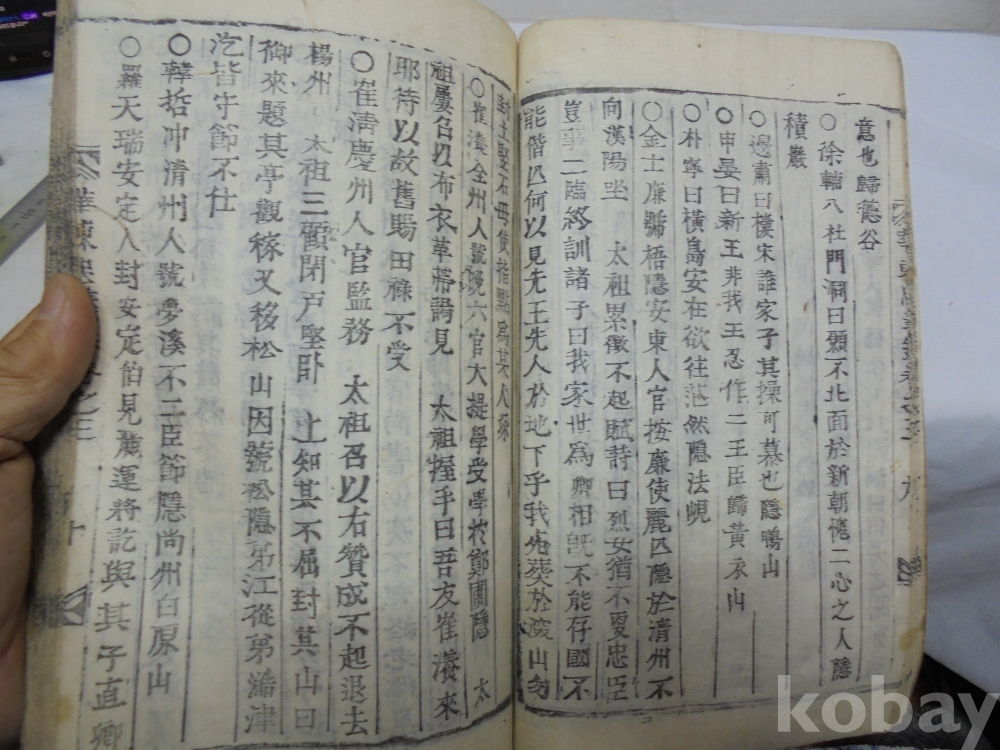 意也歸德谷
○徐輪入杜門洞曰頭不北面於新朝愧二心之人隱
積巖
○邊肅曰樸宋誰家子其操可慕也隱鳴山
○申晏曰新王非我王忍作二王臣歸黃衣山
○朴寧曰橫島安在欲往茫然隱法峴
○金士廉號梧隱安東人官按廉使麗亡隱於清州不
向漢陽坐 太祖累徵不起賦詩曰烈女猶不更忠臣
豈事二臨終訓諸子曰我家世爲卿相旣不能存國不
能偕亡何以見先王先人於地下乎我死葬於深山勿
封土竪石毋使指點爲某人塚
○崔瀁全州人號晚六官大提學受學於鄭圃隱 太
祖屢召以布衣革帶謁見 太祖握手曰吾友崔瀁來
耶待以故舊賜田祿不受
○崔淸慶州人官監務 太祖召以右贊成不起退去
楊州 太祖三顧閉户堅卧 上知其不屈封其山曰
御來題其亭觀稼又移松山因號松隱弟江從弟澔津
汔皆守節不仕
○韓哲冲清州人號夢溪不二臣節隱尚州白原山
○羅天瑞安定人封安定伯見麗運將訖與其子直卿
之三
十
kobay